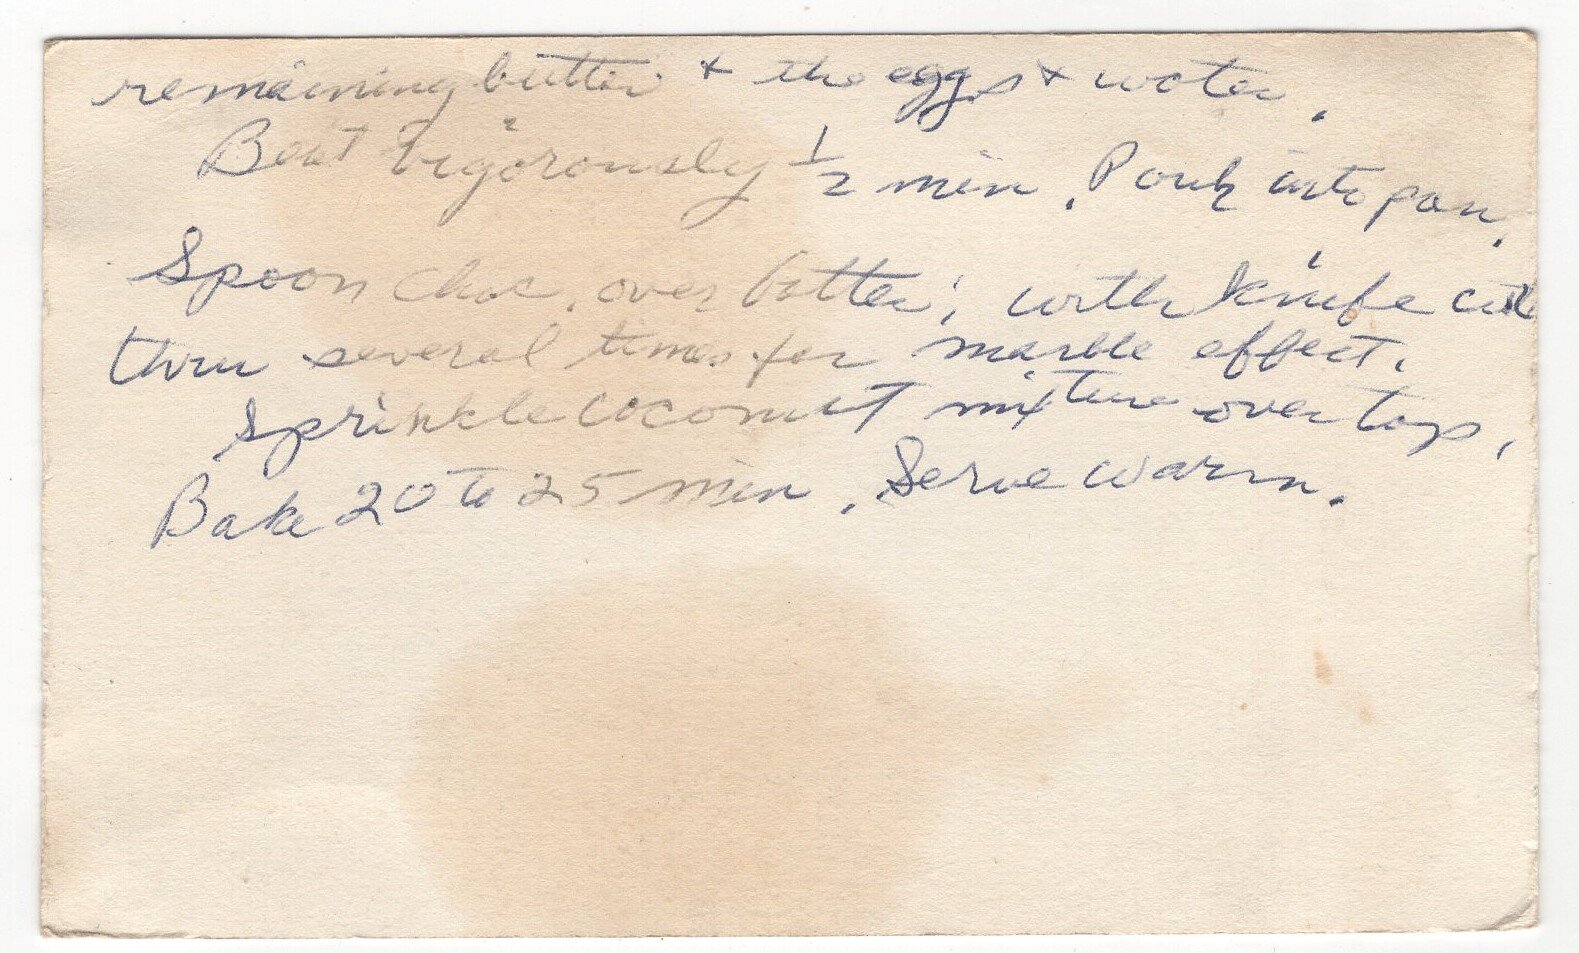 remaining butter + the eggs + water.
Beat vigorously 1/2 min. Pour into pan.
Spoon choc. over batter; with knife cut
thru several times for marble effect.
Sprinkle coconut mixture over top.
Bake 20 to 25 min. Serve warm.